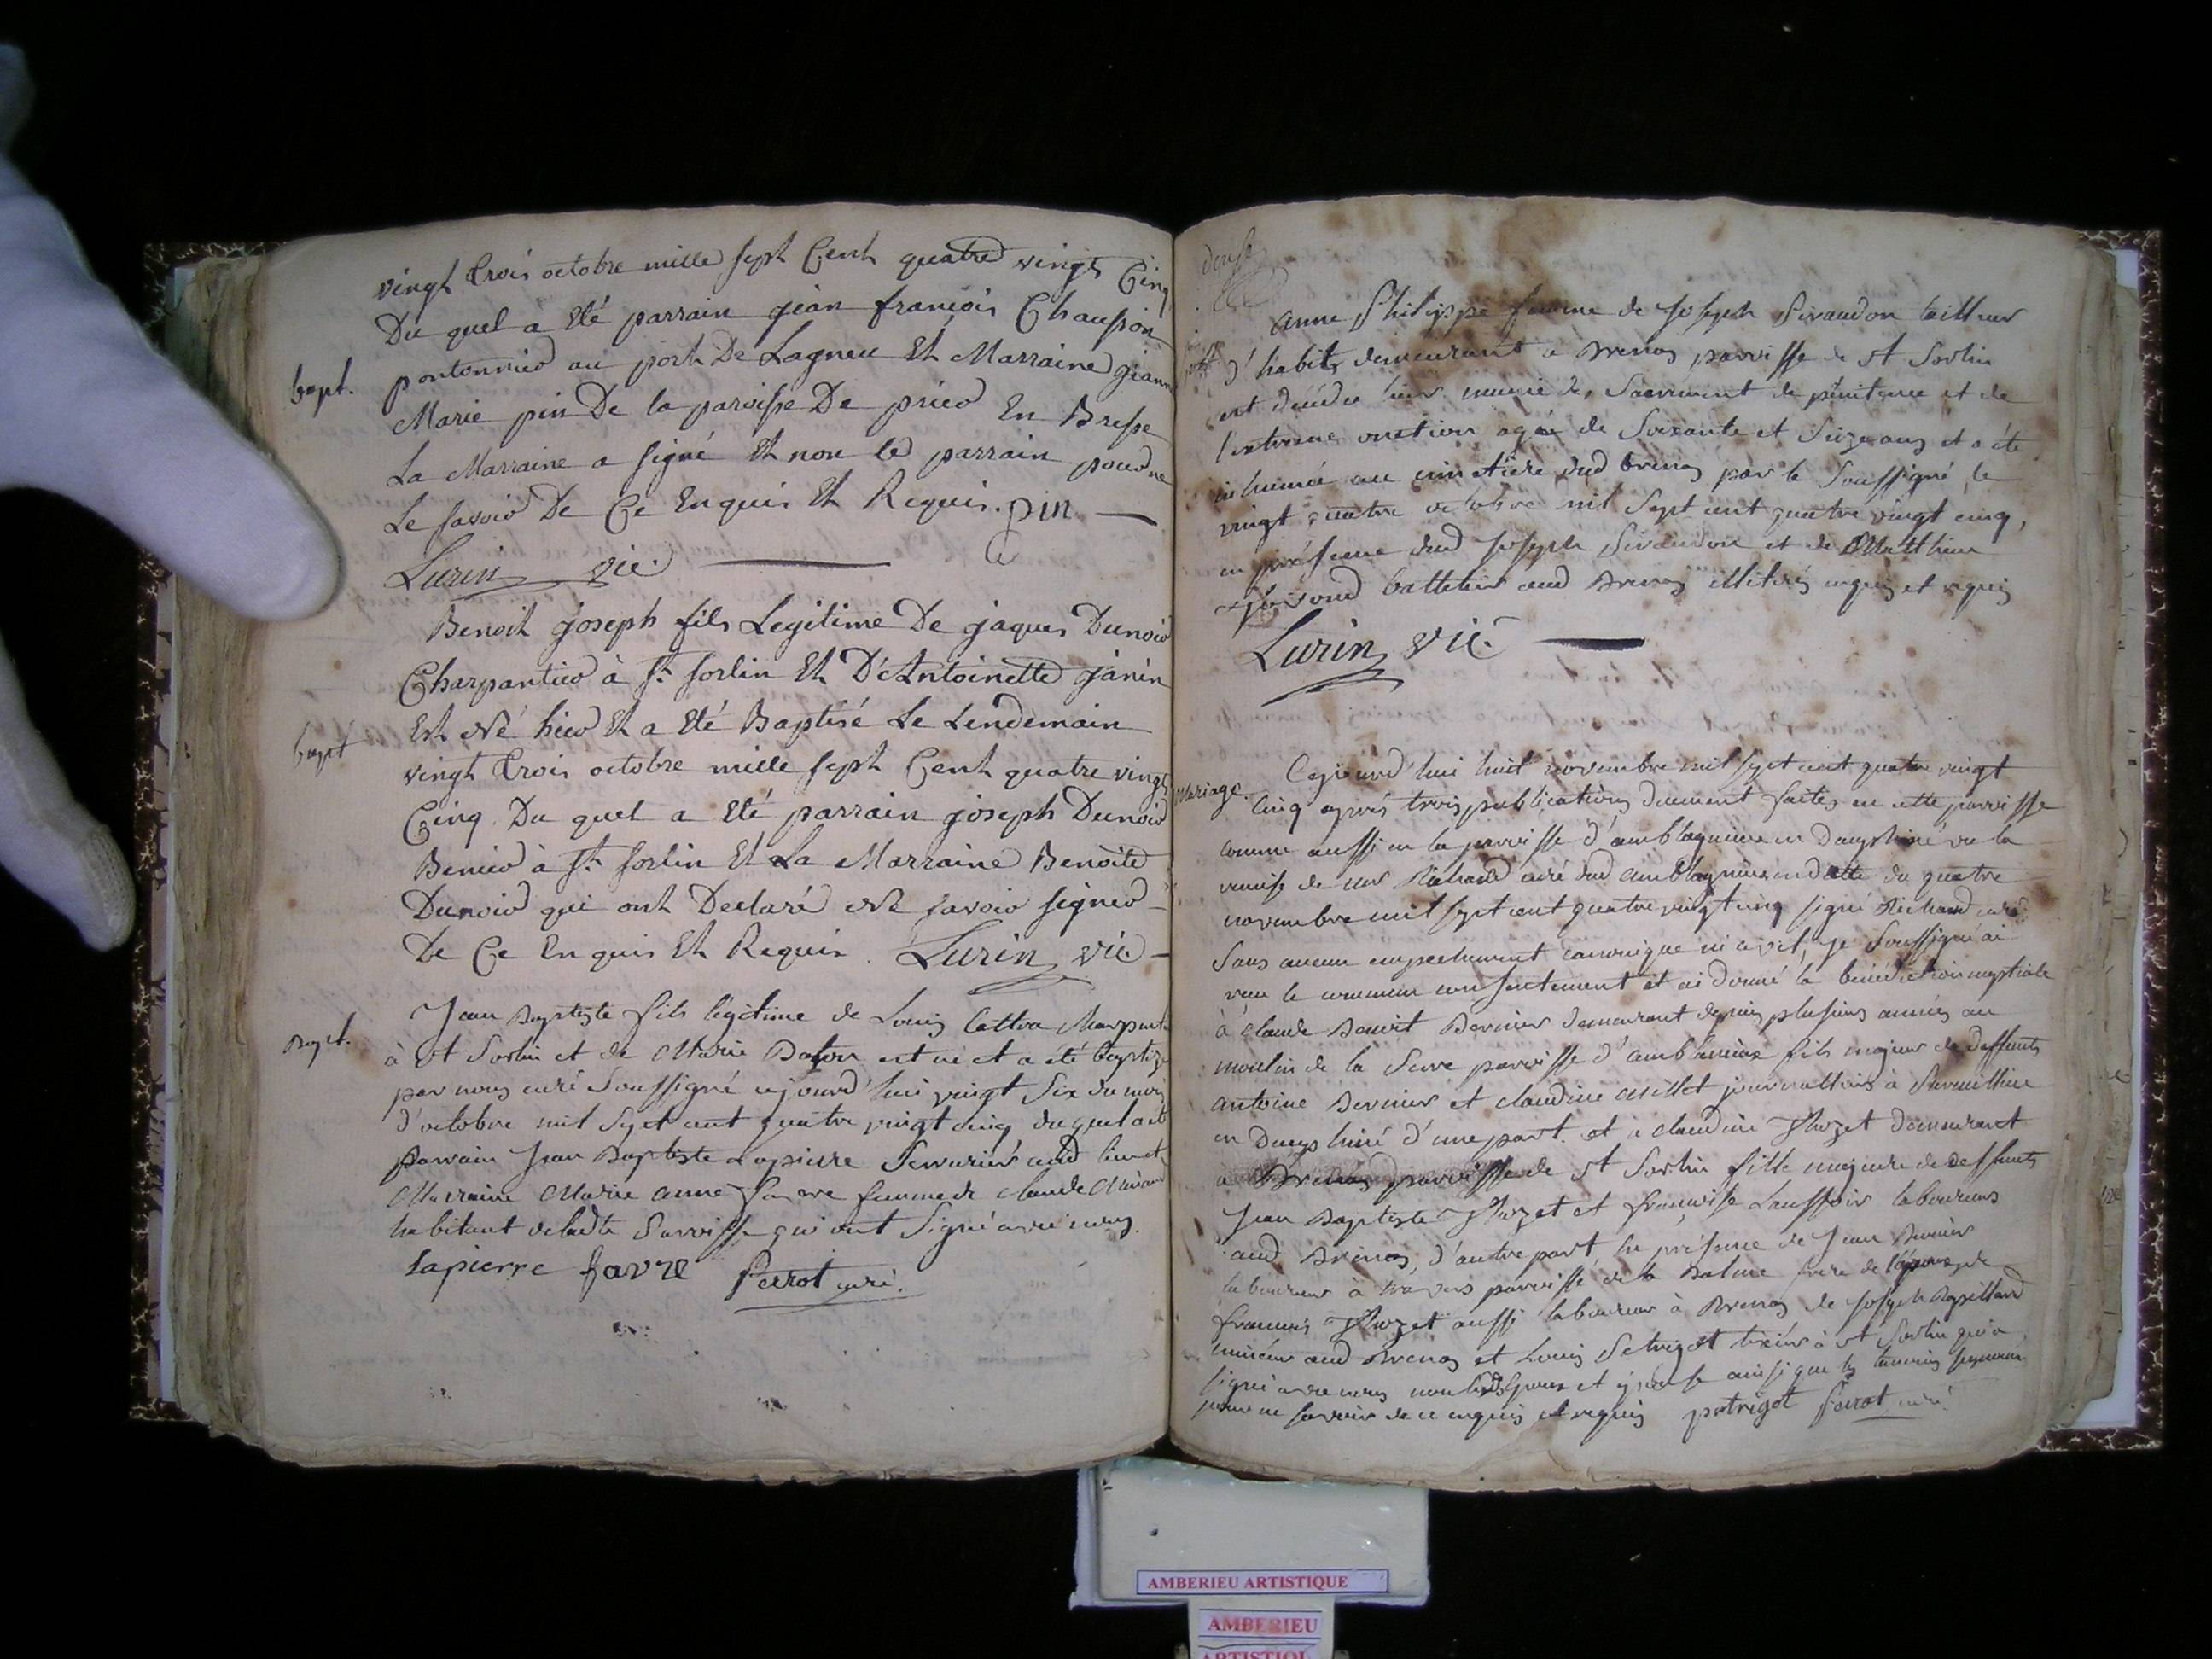 vingt trois octobre mille sept Cent quatre vingt Cinq
Du quel a été parrain jean françois Chaupon
bapt.
pontonnier au port De Lagneu Et Marraine jeanne
Marie pin De la paroisse De prieo En Bresse
La Marraine a signé Et non le parrain pour ne
Le savoir De Ce Enquis Et Requis. pin
Lurin vic.
Benoit joseph fils Legitime De jaques Dunoir
Charpantier à St. sorlin Et D'Antoinette janin
Est Né hier Et a Eté Baptisé Le Lendemain
bapt
vingt trois octobre mille sept Cent quatre vingt
Cinq. Du quel a Eté parrain joseph Dunoir
à St. sorlin Et La Marraine Benoite
Dunoir qui ont Declaré Ne savoir signer
De Ce Enquis Et Requis. Lurin vic
Jean Baptiste fils légitime de Louis
Bapt.
à St Sorlin et de Marie est né et a été baptizé
par nous curé Soussigné cejourd'hui vingt Six du mois
d'octobre mil Sept cent quatre vingt cinq duquel a été
parrain Jean Baptiste Lapierre Serrurier aud lieu et
Marraine Marie anne femme de claude
habitant de ladte Parroisse qui ont Signé avec nous.
Lapierre favre Perrot curé.
anne Philippe femme de Joseph Sivaudon tailleur
d'habits demeurant a Brenas parroisse de St Sorlin
est décédée hier munie des Sacrement de pénitence et de
l'extreme onction agée de Soixante et Seize ans et a été
inhumée au cimetiere dud Brenas par le Soussigné, le
vingt quatre octobre mil Sept cent quatre vingt cinq,
en présence dud Joseph Sivaudon et de Matthieu
batteleur aud Brenas illiterés enquis et requis
Lurin vic.
Cejourd'hui huit novembre mil sept cent quatre vingt
Mariage.
Cinq après trois publications duement faites en cette parroisse
comme aussi en la parroisse d'amblagnieu en Dauphiné vu la
remise de mr Richard curé dud amblagnieu en datte du quatre
novembre mil sept cent quatre vingt cinq signé Richard curé
Sans aucun empechement canonique ni civil, je Soussigné ai
reçu le commun consentement et ai donné la bénédiction nuptiale
à claude Benoit Bernier demeurant depuis plusieurs années au
moulin de la Serve parroisse d'amblagnieu fils majeur de deffunts
antoine Bernier et claudine Millet journalliers à
en Dauphiné d'une part. et à claudine demeurant
à Brenas parroisse de St Sorlin fille majeure de deffunts
Jean Baptiste et françoise laboureurs
aud Brenas, d'autre part, en présence de Jean Bernier
laboureur à parroisse de la Balme frere de l'époux, de
francois aussi laboureur à Brenas de Joseph
aud Brenas et Louis Petrigot à St Sorlin qui a
signé avec nous non les époux et épouse ainsi que les temoins
pour ne savoir de ce enquis et requis petrigot Perrot curé.
AMBERIEU ARTISTIQUE
AMBERIEU
ARTISTIQUE